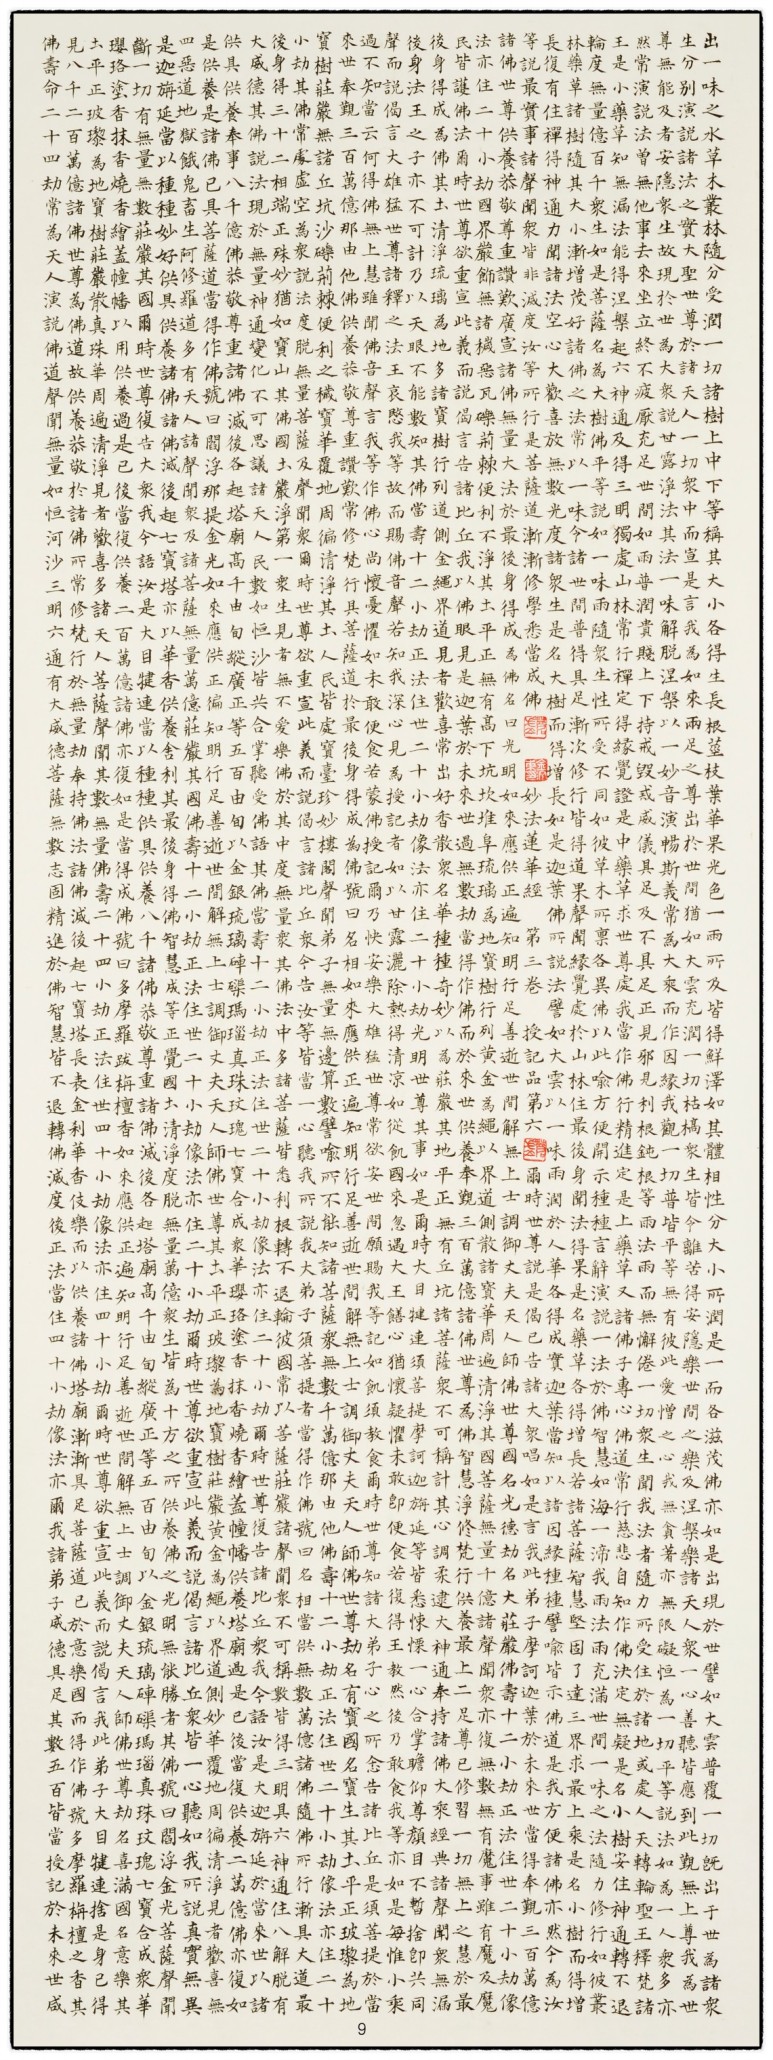 出一味之水草木叢林隨分受潤一切諸樹上中下等稱其大小各得生長根莖枝葉華果光色一雨所及皆得鮮澤如其體相性分大小所潤是一而各滋茂佛亦如是出現於世譬如大雲普覆一切既出于世為諸眾
生分別演說諸法之實大聖世尊於諸天人一切眾中而宣是言我為如來兩足之尊出於世間猶如大雲充潤一切枯槁眾生皆令離苦得安隱樂世間之樂及涅槃樂諸天人眾一心善聽皆應到此覲無上尊我為世
尊無能及者安隱眾生故現於世為大眾說甘露淨法其法一味解脫涅槃以一妙音演暢斯義常為大乘而作因緣我觀一切普皆平等無有彼此愛憎之心我無貪著亦無限礙恒為一切平等說法如為一人眾多亦
然常演說法曾無他事去來坐立終不疲厭充足世間如雨普潤貴賤上下持戒毀戒威儀具足及不具足正見邪見利根鈍根等雨法雨而無懈倦一切眾生聞我法者隨力所受住於諸地或處人天轉輪聖王釋梵諸
王是小藥草知無漏法能得涅槃起六神通及得三明獨處山林常行禪定得緣覺證是中藥草求世尊處我當作佛行精進定是上藥草又諸佛子專心佛道常行慈悲自知作佛決定無疑是名小樹安住神通轉不退
輪度無量億百千眾生如是菩薩名為大樹佛平等說如一味雨隨眾生性所受不同如彼草木所稟各異佛以此喻方便開示種種言辭演說一法於佛智慧如海一滴我雨法雨充滿世間一味之法隨力修行如彼叢
林藥草諸樹隨其大小漸增茂好諸佛之法常以一味令諸世間普得具足漸次修行皆得道果聲聞緣覺處於山林住最後身聞法得果是名藥草各得增長若諸菩薩智慧堅固了達三界求最上乘是名小樹而得增
長復有住禪得神通力聞諸法空心大歡喜放無數光度諸眾生是名大樹而得增長如是迦葉佛所說法譬如大雲以一味雨潤於人華各得成實迦葉當知以諸因緣種種譬喻開示佛道是我方便諸佛亦然今為汝
等說最實事諸聲聞眾皆非滅度汝等所行是菩薩道漸漸修學悉當成佛 妙法蓮華經 第三卷 授記品第六 爾時世尊說是偈已告諸大眾唱如是言我此弟子摩訶迦葉於未來世當得奉覲三百萬億
諸佛世尊供養恭敬尊重讚歎廣宣諸佛無量大法於最後身得成為佛名曰光明如來應供正遍知明行足善逝世間解無上士調御丈夫天人師佛世尊國名光德劫名大莊嚴佛壽十二小劫正法住世二十小劫像
法亦住二十小劫國界嚴飾無諸穢惡瓦礫荊棘便利不淨其土平正無有高下坑坎堆阜琉璃為地寶樹行列黃金為繩以界道側散諸寶華周遍清淨其國菩薩無量千億諸聲聞眾亦復無數無有魔事雖有魔及魔
民皆護佛法爾時世尊欲重宣此義而說偈言告諸比丘我以佛眼見是迦葉於未來世過無數劫當得作佛而於來世供養奉覲三百萬億諸佛世尊為佛智慧淨修梵行供養最上二足尊已修習一切無上之慧於最
後身得成為佛其土清淨琉璃為地多諸寶樹行列道側金繩界道見者歡喜常出好香散眾名華種種奇妙以為莊嚴其地平正無有丘坑諸菩薩眾不可稱計其心調柔逮大神通奉持諸佛大乘經典諸聲聞眾無漏
後身法王之子亦不可計乃以天眼不能數知其佛當壽十二小劫正法住世二十小劫像法亦住二十小劫光明世尊其事如是爾時大目犍連須菩提摩訶迦旃延等皆悉悚慄一心合掌瞻仰尊顏目不暫捨即共同
聲而說偈言大雄猛世尊諸釋之法王哀愍我等故而賜佛音聲若知我深心見為授記者如以甘露灑除熱得清涼如從飢國來忽遇大王饍心猶懷疑懼未敢即便食若復得王教然後乃敢食我等亦如是每惟小乘
過不知當云何得佛無上慧雖聞佛音聲言我等作佛心尚懷憂懼如未敢便食若蒙佛授記爾乃快安樂大雄猛世尊常欲安世間願賜我等記如飢須教食爾時世尊知諸大弟子心之所念告諸比丘是須菩提於當
來世奉覲三百萬億那由他佛供養恭敬尊重讚歎常修梵行具菩薩道於最後身得成為佛號曰名相如來應供正遍知明行足善逝世間解無上士調御丈夫天人師佛世尊劫名有寶國名寶生其土平正玻瓈為地
寶樹莊嚴無諸丘坑沙礫荊棘便利之穢寶華覆地周遍清淨其土人民皆處寶臺珍妙樓閣聲聞弟子無量無邊算數譬喻所不能知諸菩薩眾無數千萬億那由他佛壽十二小劫正法住世二十小劫像法亦住二十
小劫其佛常處虛空為眾說法度脫無量菩薩及聲聞眾爾時世尊欲重宣此義而說偈言諸比丘眾今告汝等皆當一心聽我所說我大弟子須菩提者當得作佛號曰名相當供無數萬億諸佛隨佛所行漸具大道最
後身得三十二相端正殊妙猶如寶山其佛國土嚴淨第一眾生見者無不愛樂佛於其中度無量眾其佛法中多諸菩薩皆悉利根轉不退輪彼國常以菩薩莊嚴諸聲聞眾不可稱數皆得三明具六神通住八解脫有
大威德其佛說法現於無量神通變化不可思議諸天人民數如恒沙皆共合掌聽受佛語其佛當壽十二小劫正法住世二十小劫像法亦住二十小劫爾時世尊復告諸比丘眾我今語汝是大迦旃延於當來世以諸
供具供養奉事八千億佛恭敬尊重諸佛滅後各起塔廟高千由旬縱廣正等五百由旬以金銀琉璃硨磲瑪瑙真珠玫瑰七寶合成眾華瓔珞塗香抹香燒香繒蓋幢幡供養塔廟過是已後當復供養二萬億佛亦復如
是供養是諸佛已具菩薩道當得作佛號曰閻浮那提金光如來應供正遍知明行足善逝世間解無上士調御丈夫天人師佛世尊其土平正玻瓈為地寶樹莊嚴黃金為繩以界道側妙華覆地周遍清淨見者歡喜無
四惡道地獄餓鬼畜生阿修羅道多有天人諸聲聞眾及諸菩薩無量萬億莊嚴其國佛壽十二小劫正法住世二十小劫像法亦住二十小劫爾時世尊欲重宣此義而說偈言諸比丘眾皆一心聽如我所說真實無異
是迦旃延當以種種妙好供具供養諸佛諸佛滅後起七寶塔亦以華香供養舍利其最後身得佛智慧成等正覺國土清淨度脫無量萬億眾生皆為十方之所供養佛之光明無能勝者其佛號曰閻浮金光菩薩聲聞
斷一切有無量無數莊嚴其國爾時世尊復告大眾我今語汝是大目犍連當以種種供具供養八千諸佛恭敬尊重諸佛滅後各起塔廟高千由旬縱廣正等五百由旬以金銀琉璃硨磲瑪瑙真珠玫瑰七寶合成眾華
瓔珞塗香抹香燒香繒蓋幢幡以用供養過是已後當復供養二百萬億諸佛亦復如是當得成佛號曰多摩羅跋栴檀香如來應供正遍知明行足善逝世間解無上士調御丈夫天人師佛世尊劫名喜滿國名意樂其
土平正玻瓈為地寶樹莊嚴散真珠華周遍清淨見者歡喜多諸天人菩薩聲聞其數無量佛壽二十四小劫正法住世四十小劫像法亦住四十小劫爾時世尊欲重宣此義而說偈言我此弟子大目犍連捨是身已得
見八千二百萬億諸佛世尊為佛道故供養恭敬於諸佛所常修梵行於無量劫奉持佛法諸佛滅後起七寶塔長表金剎華香伎樂而以供養諸佛塔廟漸漸具足菩薩道已於意樂國而得作佛號多摩羅栴檀之香其
佛壽命二十四劫常為天人演說佛道聲聞無量如恒河沙三明六通有大威德菩薩無數志固精進於佛智慧皆不退轉佛滅度後正法當住四十小劫像法亦爾我諸弟子威德具足其數五百皆當授記於未來世咸
9